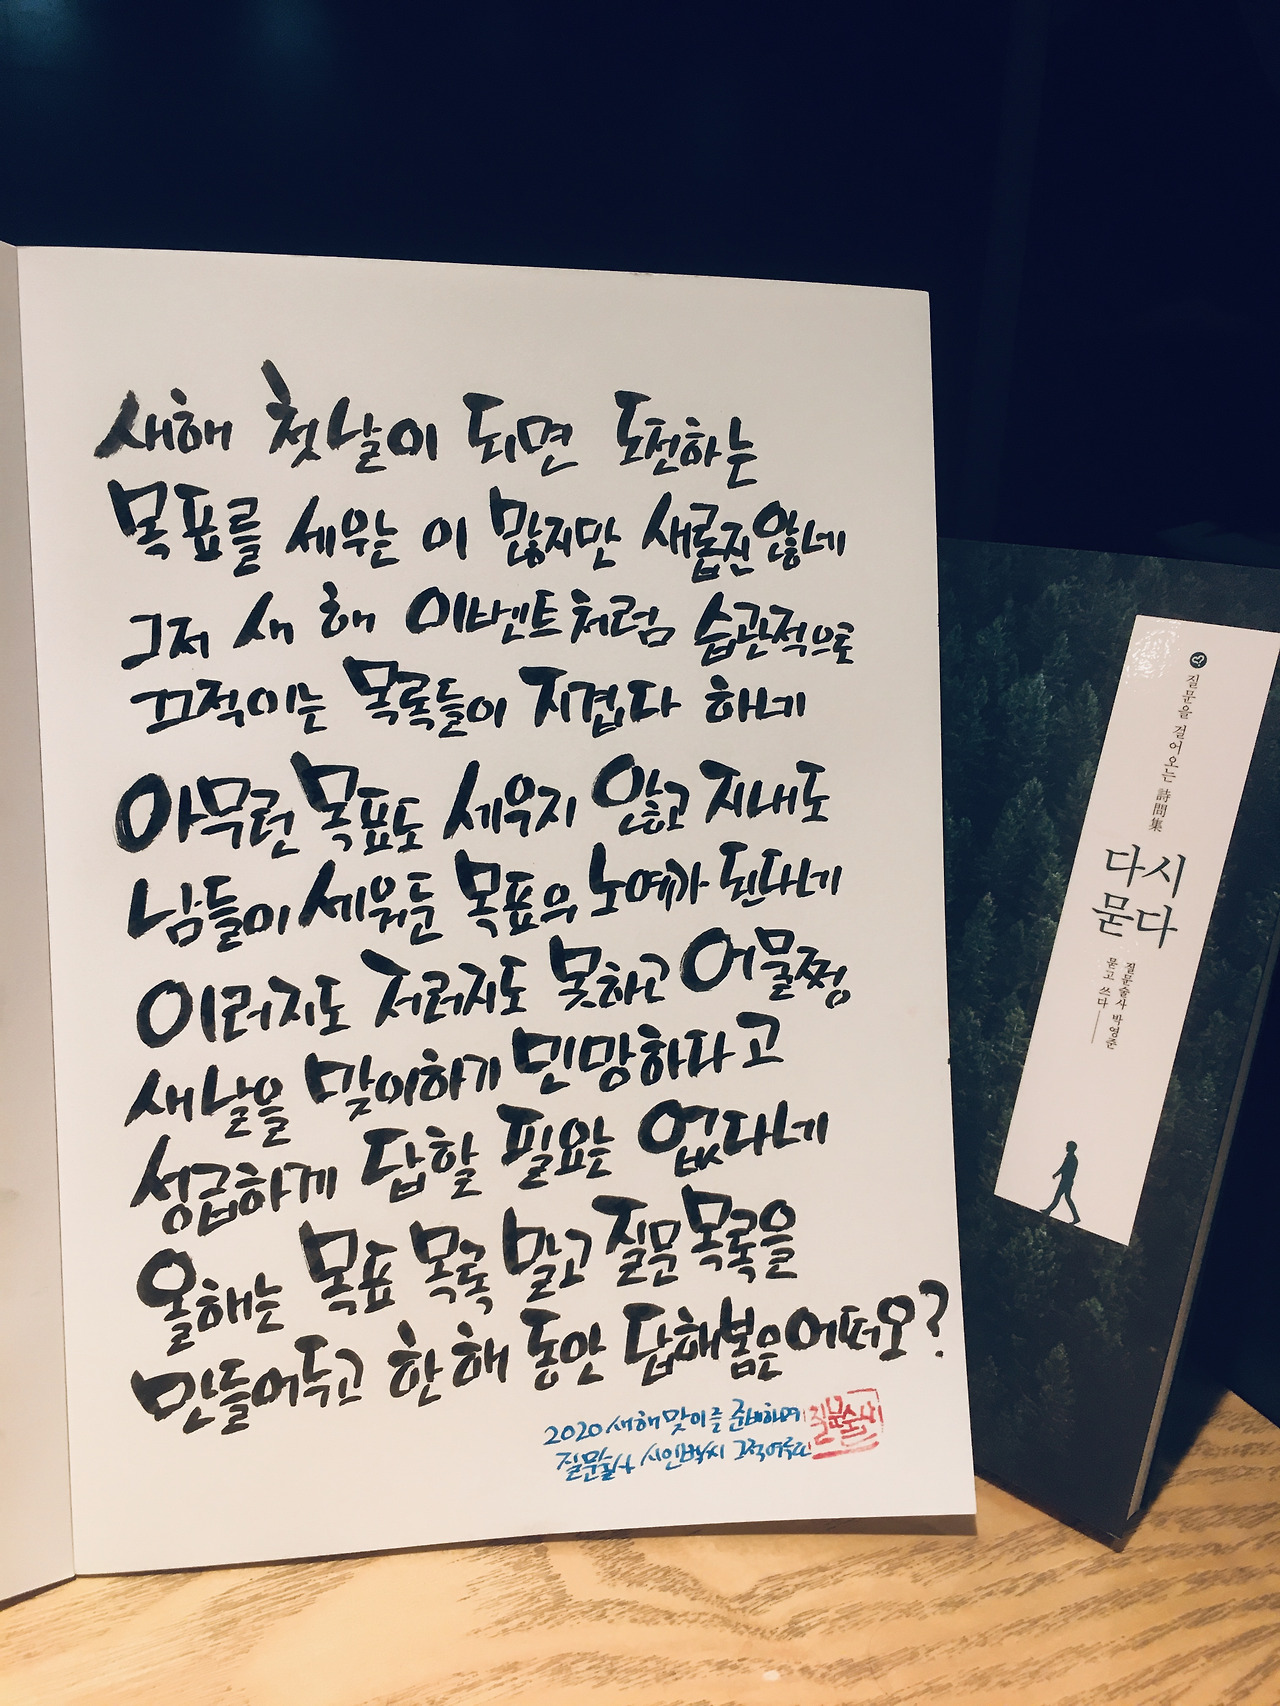 새해 첫날이 되면 도전하는
목표를 세우는 이 많지만 새롭진 않네
그저 새 해 이벤트처럼 습관적으로
끄적이는 목록들이 지겹다 하네
아무런 목표도 세우지 않고 지내도
남들이 세워둔 목표의 노예가 된다네
이러지도 저러지도 못하고 어물쩡
새날을 맞이하기 민망하다고
성급하게 답할 필요는 없다네
올해는 목표 목록 말고 질문 목록을
만들어두고 한 해 동안 답해봄은 어떠오?
2020 새해 맞이를 준비하며
질문술사 시인박씨 그적여두다
질문술사
질문을 걸어오는 詩問集
다시
묻다
질문술사 박영준
묻고 쓰다